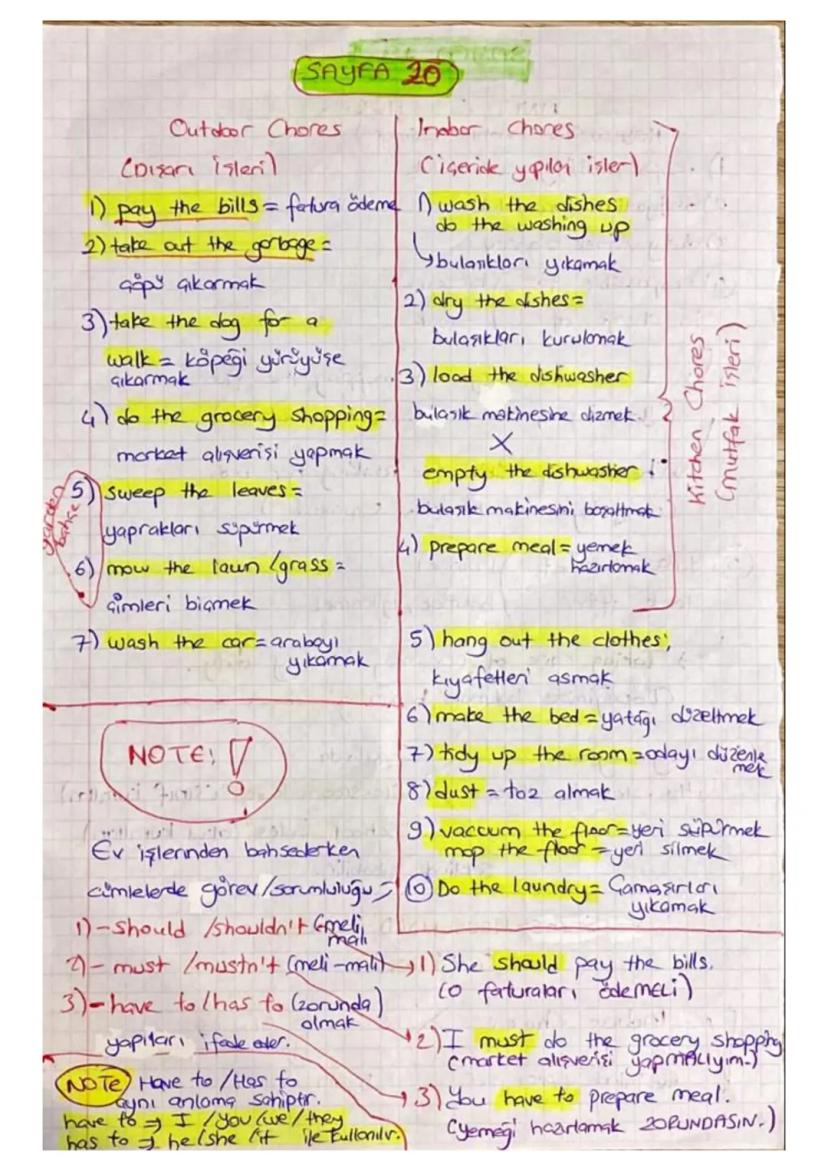 SAYFA 20
Outdoor Chores
(Dışarı işleri)
1) pay the bills = fatura ödeme
2) take out the garbage =
çöpü çıkarmak
3) take the dog for a
walk = köpeği yürüyüşe
çıkarmak
4) do the grocery shopping =
market alışverişi yapmak
5) sweep the leaves =
yaprakları süpürmek
6) mow the lawn / grass =
çimleri biçmek
garden
bahçe
7) wash the car = arabayı
yıkamak
Indoor Chores
(içeride yapılan işler)
1) wash the dishes
do the washing up
bulaşıkları yıkamak
2) dry the dishes =
bulaşıkları kurulamak
3) load the dishwasher
bulaşık makinesine dizmek
X
empty the dishwasher :
bulaşık makinesini boşaltmak
4) prepare meal = yemek
hazırlamak
Kitchen Chores
(mutfak işleri)
5) hang out the clothes;
kıyafetleri asmak
6) make the bed = yatağı düzeltmek
7) tidy up the room = odayı düzenle
mek
8) dust = toz almak
9) vaccum the floor = yeri süpürmek
mop the floor = yeri silmek
10) Do the laundry = Çamaşırları
yıkamak
NOTE: !
Ev işlerinden bahsederken
cümlelerde görev/sorumluluğu =
1) - should / shouldn't (meli,
malı
2) - must / mustn't (meli - malı)
3) - have to / has to (zorunda)
olmak
yapıları ifade eder.
1) She should pay the bills.
(O faturaları ödeMELİ)
2) I must do the grocery shopping
(market alışverişi yapMALIyım.)
3) You have to prepare meal.
(yemeği hazırlamak ZORUNDASIN.)
NOTE Have to / Has to
aynı anlama sahiptir.
have to → I / you / we / they
has to → he / she / it ile kullanılır.